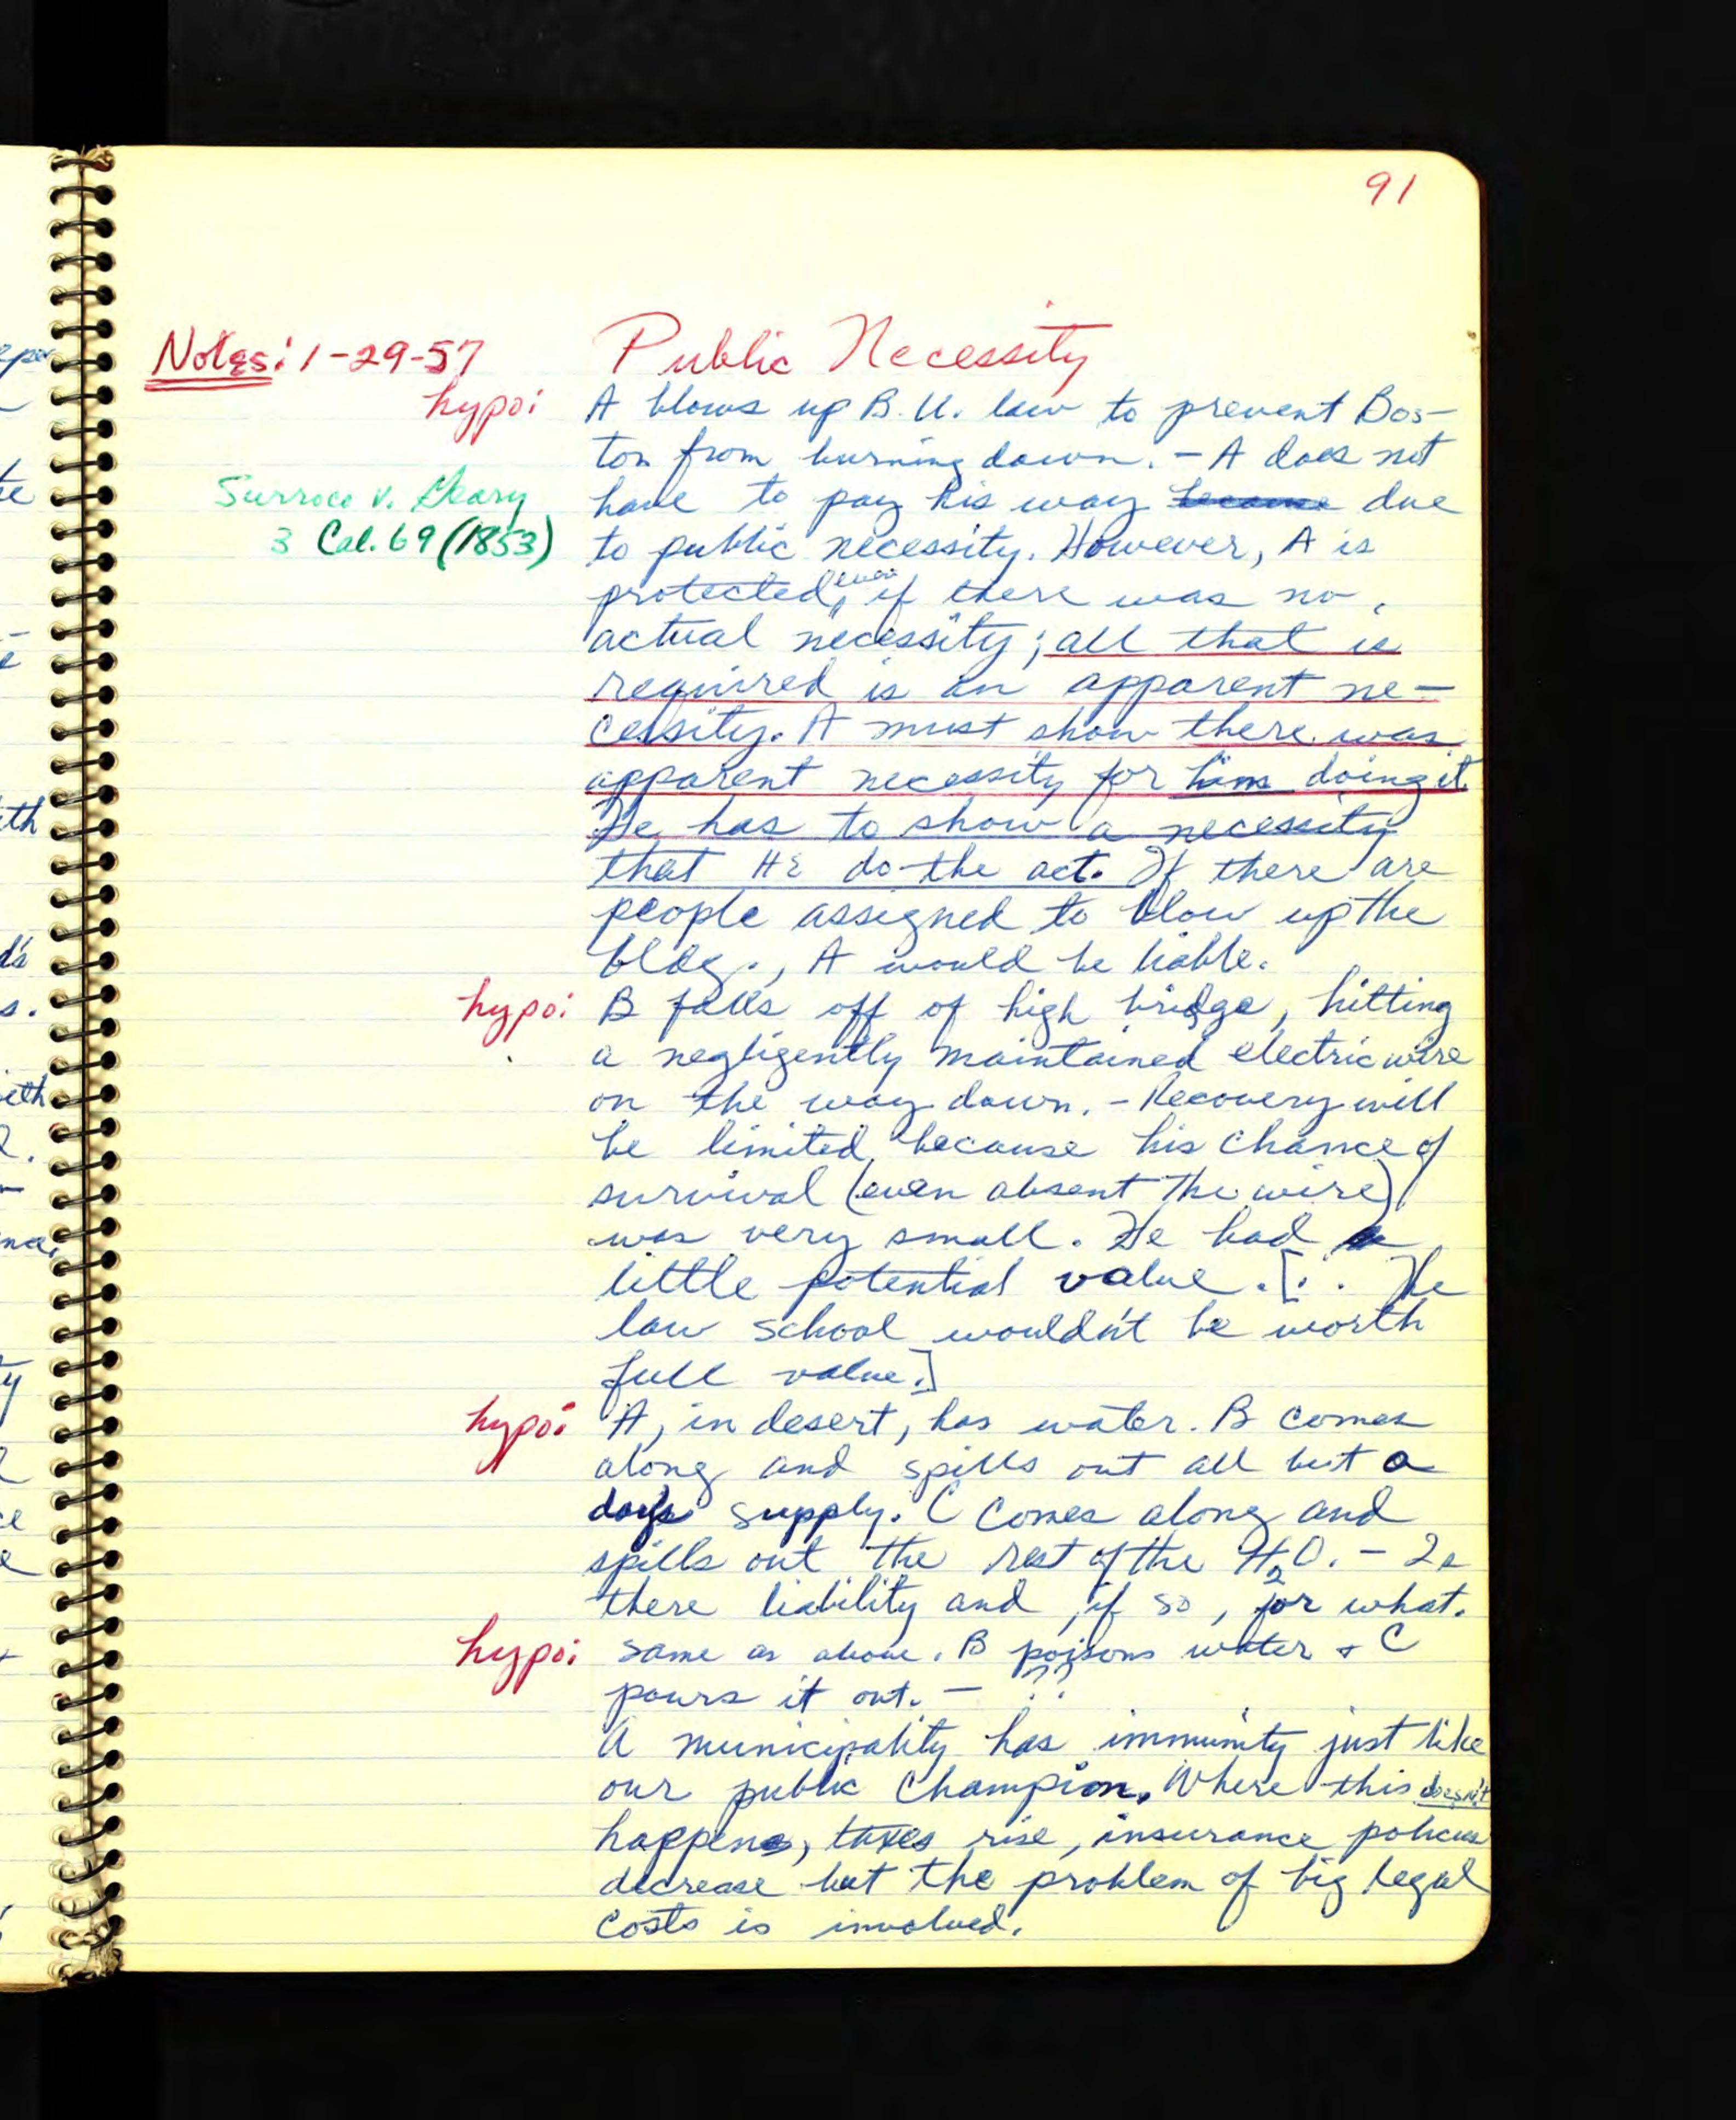 91
Notes: 1-29-57
Public Necessity
hypo:
A blows up B.U. law to prevent Bos-
ton from burning down. - A does not
Surroco v. Geary
have to pay his way because due
3 Cal. 69 (1853)
to public necessity. However, A is
protected, even if there was no
actual necessity; all that is
required is an apparent ne-
cessity. A must show there was
apparent necessity for him doing it.
He has to show a necessity
that HE do the act. If there are
people assigned to blow up the
bldg., A would be liable.
hypo:
B falls off of high bridge, hitting
a negligently maintained electric wire
on the way down. - Recovery will
be limited because his chance of
survival (even absent the wire)
was very small. He had a
little potential value. [∴ The
law school wouldn't be worth
full value.]
hypo:
A, in desert, has water. B comes
along and spills out all but a
day's supply. C comes along and
spills out the rest of the H2O. - Is
there liability and, if so, for what.
hypo:
same as above. B poisons water + C
pours it out. - ??
A municipality has immunity just like
our public Champion. Where this doesn't
happen, taxes rise, insurance policies
decrease but the problem of big legal
costs is involved.